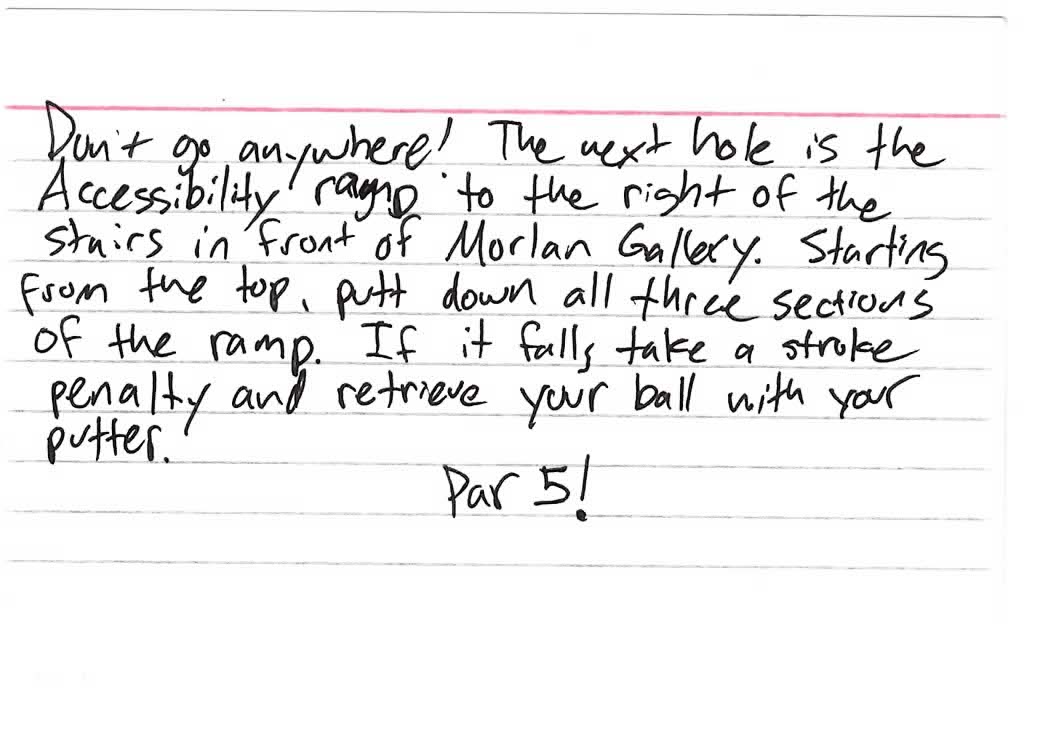 Don't go anywhere! The next hole is the
Accessibility ramp to the right of the
stairs in front of Morlan Gallery. Starting
from the top, putt down all three sections
of the ramp. If it falls take a stroke
penalty and retrieve your ball with your
putter.
Par 5!